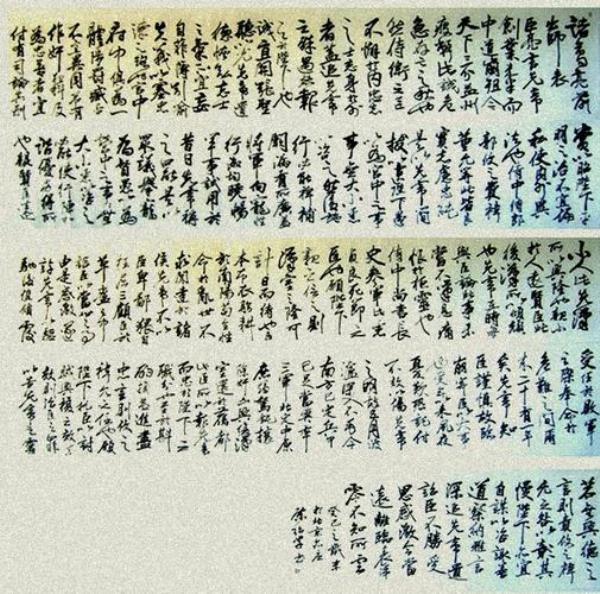 諸葛亮前
出師表
臣亮言先帝
創業未半而
中道崩殂今
天下三分益州
疲弊此誠危
急存亡之秋也
然侍衛之臣
不懈於內忠志
之士忘身於外
者蓋追先帝
之殊遇欲報
之於陛下也
誠宜開張聖
聽以光先帝遺
德恢弘志士
之氣不宜妄
自菲薄引喻
失義以塞忠
諫之路也宮中
府中俱為一
體陟罰臧否
不宜異同若有
作奸犯科及
為忠善者宜
付有司論其刑
賞以昭陛下平
明之治不宜偏
私使內外異
法也侍中侍郎
郭攸之費禕
董允等此皆良
實志慮忠純
是以先帝簡
拔以遺陛下愚
以為宮中之事
事無大小悉
以咨之然後施
行必能裨補
闕漏有所廣益
將軍向寵性
行淑均曉暢
軍事試用於
昔日先帝稱
之曰能是以
眾議舉寵
為督愚以為
營中之事事
大小悉以咨之
必能使行陣和
睦優劣得所
也親賢臣遠
小人此先漢
所以興隆也親小
人遠賢臣此
後漢所以傾頹
也先帝在時每
與臣論此事未
嘗不嘆息痛
恨於桓靈也
侍中尚書長
史參軍此悉
貞良死節之
臣也願陛下
親之信之則
漢室之隆可
計日而待也臣
本布衣躬耕
於南陽苟全性
命於亂世不
求聞達於諸
侯先帝不以
臣卑鄙猥自
枉屈三顧臣於
草廬之中
諮臣以當世之事
由是感激遂
許先帝以驅
馳後值傾覆
受任於敗軍
之際奉命於
危難之間爾
來二十有一年
矣先帝知
臣謹慎故臨
崩寄臣以大事
也受命以來夙夜
憂歎恐託付
不效以傷先帝
之明故五月渡
瀘深入不毛今
南方已定兵甲
已足當獎率
三軍北定中原
庶竭駑鈍攘
除奸凶興復漢
室還於舊都
此臣所以報先帝
而忠於陛下之
職分也至於斟
酌損益進盡
忠言則攸之
禕允之任也願
陛下託臣以討
賊興復之效不
效則治臣之罪
以告先帝之靈
若無興德之
言則責攸之禕
允之咎以彰其
慢陛下亦宜
自謀以咨諏善
道察納雅言
深追先帝遺
詔臣不勝受
恩感激今當
遠離臨表涕
零不知所云
癸巳之歲末
於北京